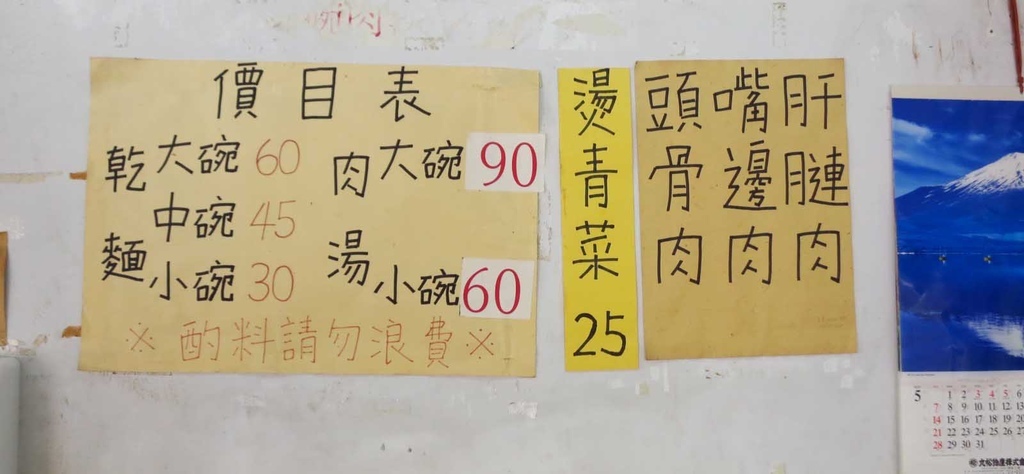 價目表
乾麵
大碗 60
中碗 45
小碗 30
肉湯
大碗 90
小碗 60
※酌料請勿浪費※
燙青菜 25
肝腱肉
嘴邊肉
頭骨肉
5
1 2 3 4 5 6
7 8 9 10 11 12 13
14 15 16 17 18 19 20
21 22 23 24 25 26 27
28 29 30 31